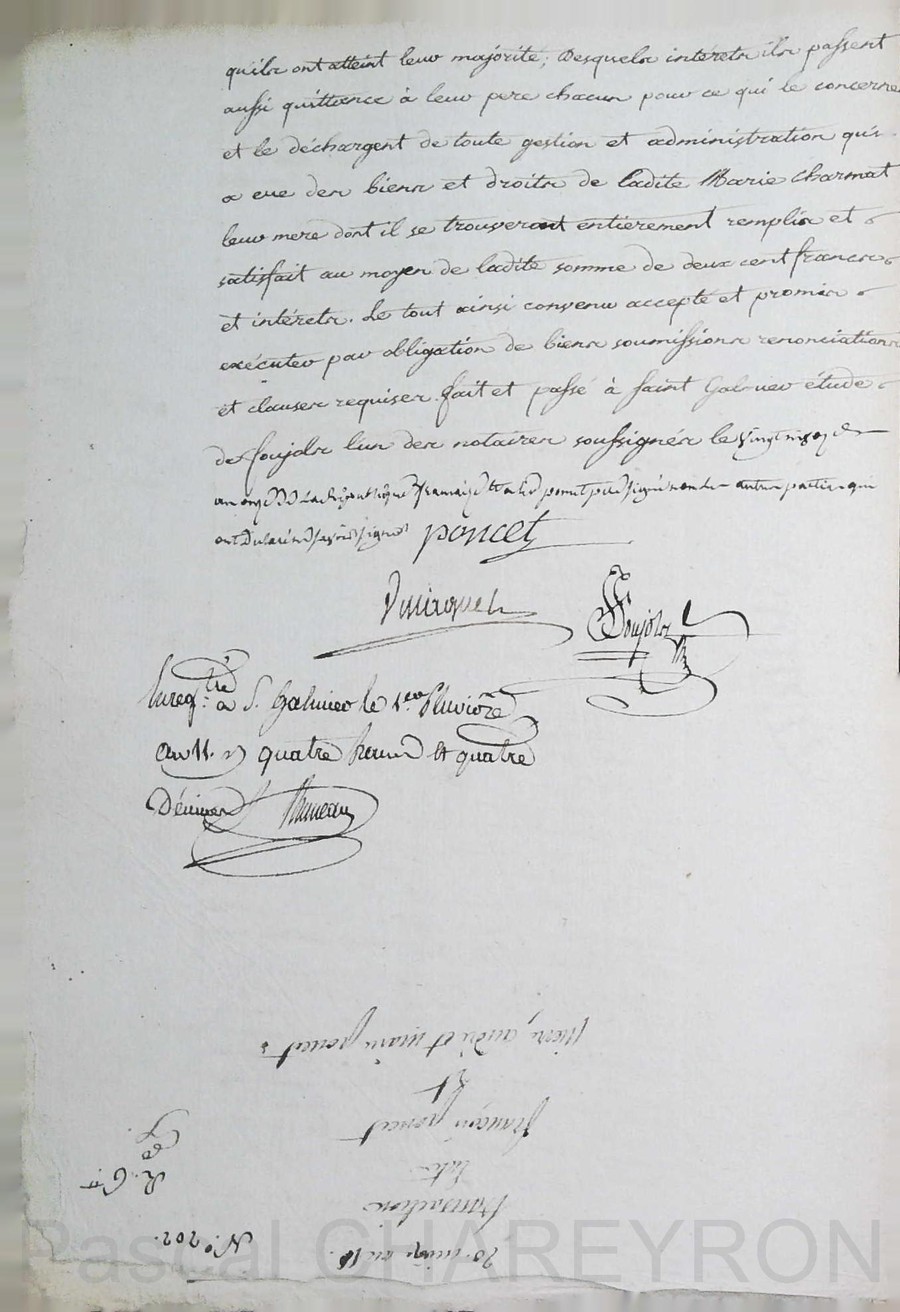 qu'ils ont atteint leur majorité; desquels intérets ils passent
aussi quittance à leur pere chacun pour ce qui le concerne
et le déchargent de toute gestion et administration qu'i
a eue des biens et droits de ladite Marie Charmat
leur mere dont il se trouveront entièrement remplis et
satisfait au moyen de ladite somme de deux cent francs
et intérets. Le tout ainsi convenu accepté et promis
exécuter par obligation de biens soumissions renonciations
et clauses requises. fait et passé à Saint Galmier étude
de Soujols l'un des notaires soussignés le vingt nivose
an onze de la République française
ont déclaré ne savoir signer poncet
Soujols
Enreg.tré à S. Galmier le 1.er Pluviôse
an 11. quatre francs et quatre
Décimes
pierre, andré et marie poncet
Et
françois poncet
entre
transaction
20. nivose an 11.
N.º 202.
Pascal CHAREYRON